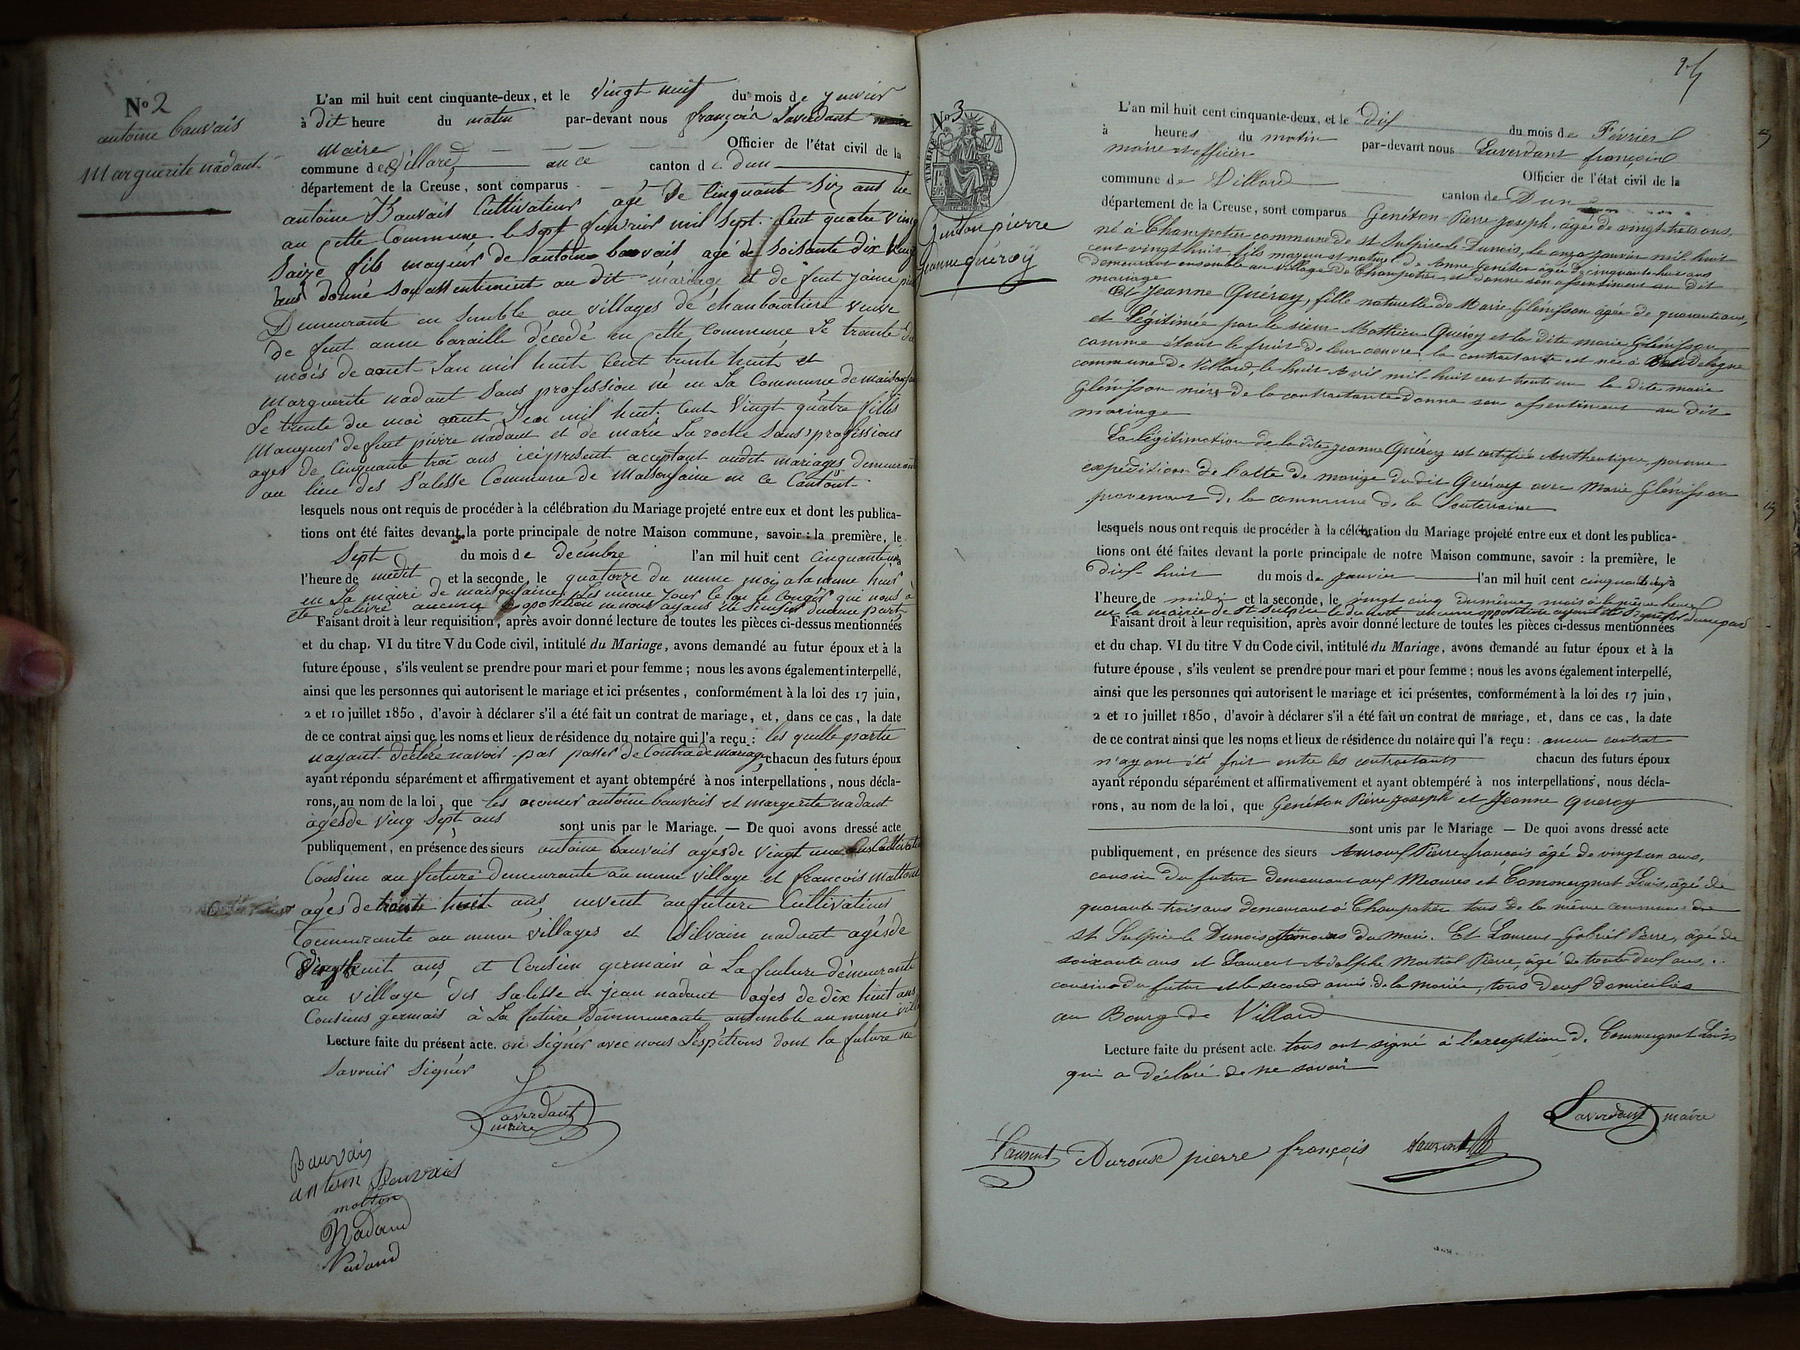 No 2
antoine bauvais
Marguerite nadant
L'an mil huit cent cinquante-deux, et le vingt neuf du mois de janvier
à dit heure du matin par-devant nous françois Laverdant
maire Officier de l'état civil de la
commune de Villard canton de dun
département de la Creuse, sont comparus
antoine Bauvais Cultivateur agé de Cinquant Six ans né
au cette Commune le Sept mil Sept Cent quatre vingt
Saize fils mayeur de antoine bauvais agé de Soisante dix
ans donné Son assentiment au dit mariage et de feut
Demeurante en Semble au villages de veuve
de feut anne baraille décedé en cette Commune Le trente du
mois de aout Lan mil huit Cent trente huit et
Marguerite nadaut Sans profession né en La Commune de maisonfeine
Le trente du moi aout Lan mil huit Cent vingt quatre filles
Mayeur de feut pierre nadaut et de marie La roche Sans professions
ages de Cinquante troi ans ici présent acceptant audit mariages demeurant
au lieu des Salesse Commune de Maisonfaine en Ce Cantont
lesquels nous ont requis de procéder à la célébration du Mariage projeté entre eux et dont les publica-
tions ont été faites devant la porte principale de notre Maison commune, savoir : la première, le
Sept du mois de decimbre l'an mil huit cent cinquante un
l'heure de medit et la seconde, le quatorze du meme moi a la meme heur
en La mairi de maisonfaine Les meme jour
été délivré aucune opposition
Faisant droit à leur requisition, après avoir donné lecture de toutes les pièces ci-dessus mentionnées
et du chap. VI du titre V du Code civil, intitulé du Mariage, avons demandé au futur époux et à la
future épouse, s'ils veulent se prendre pour mari et pour femme ; nous les avons également interpellé,
ainsi que les personnes qui autorisent le mariage et ici présentes, conformément à la loi des 17 juin,
2 et 10 juillet 1850, d'avoir à déclarer s'il a été fait un contrat de mariage, et, dans ce cas, la date
de ce contrat ainsi que les noms et lieux de résidence du notaire qui l'a reçu : les quelle partie
nayant déclaré navoir pas passer de Contra de mariage chacun des futurs époux
ayant répondu séparément et affirmativement et ayant obtempéré à nos interpellations, nous décla-
rons, au nom de la loi, que les nomer antoine bauvais et margerite nadaut
agés de ving Sept ans sont unis par le Mariage. — De quoi avons dressé acte
publiquement, en présence des sieurs antoine bauvais agés de vingt une ans Cultivateur
Cousin au future Demeurante au meme village et francois mattont
agés de trante huit ans, neveut au future Cultivateur
Demeurante au meme villages et Silvain nadaut agés de
vingt huit ans et Cousin germain à La future demeurante
au village des Salesse et jean nadaut agés de dix huit ans
Cousins germais à La future Demeurante ansemble au meme village
Lecture faite du présent acte. on Signér avec nous Lespétions dont la future ne
Savoir Signér
Laverdant
maire
Bauvais
antoin Beuvais
motton
Nadaud
Nadaud
25
No 3
TIMBRE
Geniton pierre
jeanne quéroÿ
L'an mil huit cent cinquante-deux, et le dix du mois de Février
à heures du matin par-devant nous Laverdant françois
maire et officier Officier de l'état civil de la
commune de Villard canton de Dun
département de la Creuse, sont comparus Geniton Pierre Joseph, âgé de vingt trois ans,
né à Champotier commune de st Sulpice le Dunois, le onze janvier mil huit
cent vingt huit, fils mayeur et naturel de Anne Geniton âgée de cinquante huit ans
demeurant ensemble au village de Champotier et donne son assentiment au dit
mariage
Et Jeanne Quéroy, fille naturelle de Marie Glénisson âgée de quarante ans,
et légitimée par le sieur Mathieu Quéroy et la dite marie Glénisson
comme étant le fruit de leur œuvre, la contractante est née à
commune de Villard le huit Avril mil huit cent trente un la dite marie
Glénisson mère de la contractante donne son assentiment au dit
mariage
La légitimation de la dite jeanne Quéroy est certifiée Authentique, par une
expédition de l'acte de mariage du dit Quéroy avec Marie Glénisson
provenant de la commune de la Souterraine
lesquels nous ont requis de procéder à la célébration du Mariage projeté entre eux et dont les publica-
tions ont été faites devant la porte principale de notre Maison commune, savoir : la première, le
dix huit du mois de janvier l'an mil huit cent cinquante deux
l'heure de midi et la seconde, le vingt cinq du même mois à la même heure
en la mairie de st Sulpice le dunois aucune opposition ayant été signifié d'aucune part
Faisant droit à leur requisition, après avoir donné lecture de toutes les pièces ci-dessus mentionnées
et du chap. VI du titre V du Code civil, intitulé du Mariage, avons demandé au futur époux et à la
future épouse, s'ils veulent se prendre pour mari et pour femme ; nous les avons également interpellé,
ainsi que les personnes qui autorisent le mariage et ici présentes, conformément à la loi des 17 juin,
2 et 10 juillet 1850, d'avoir à déclarer s'il a été fait un contrat de mariage, et, dans ce cas, la date
de ce contrat ainsi que les noms et lieux de résidence du notaire qui l'a reçu : aucun contrat
n'ayant été fait entre les contractants chacun des futurs époux
ayant répondu séparément et affirmativement et ayant obtempéré à nos interpellations, nous décla-
rons, au nom de la loi, que Geniton Pierre joseph et Jeanne queroy
sont unis par le Mariage — De quoi avons dressé acte
publiquement, en présence des sieurs Auroux Pierre françois âgé de vingt un ans,
cousin du futur demeurant aux Mesures et Commergnat Louis, âgé de
quarante trois ans demeurant à Champotier tous de la même commune de
st Sulpice le Dunois témoins du marié. Et Laurent Gabriel Pierre, âgé de
soixante ans et Laurent Adolphe Martial Pierre, âgé de trente deux ans,
cousin du futur et le second amis de la mariée, tous deux domiciliés
au Bourg de Villard
Lecture faite du présent acte. tous ont signé à l'exception de Commergnat Louis
qui a déclaré de ne savoir
Laverdant maire
Laurent Auroux pierre françois Laurent